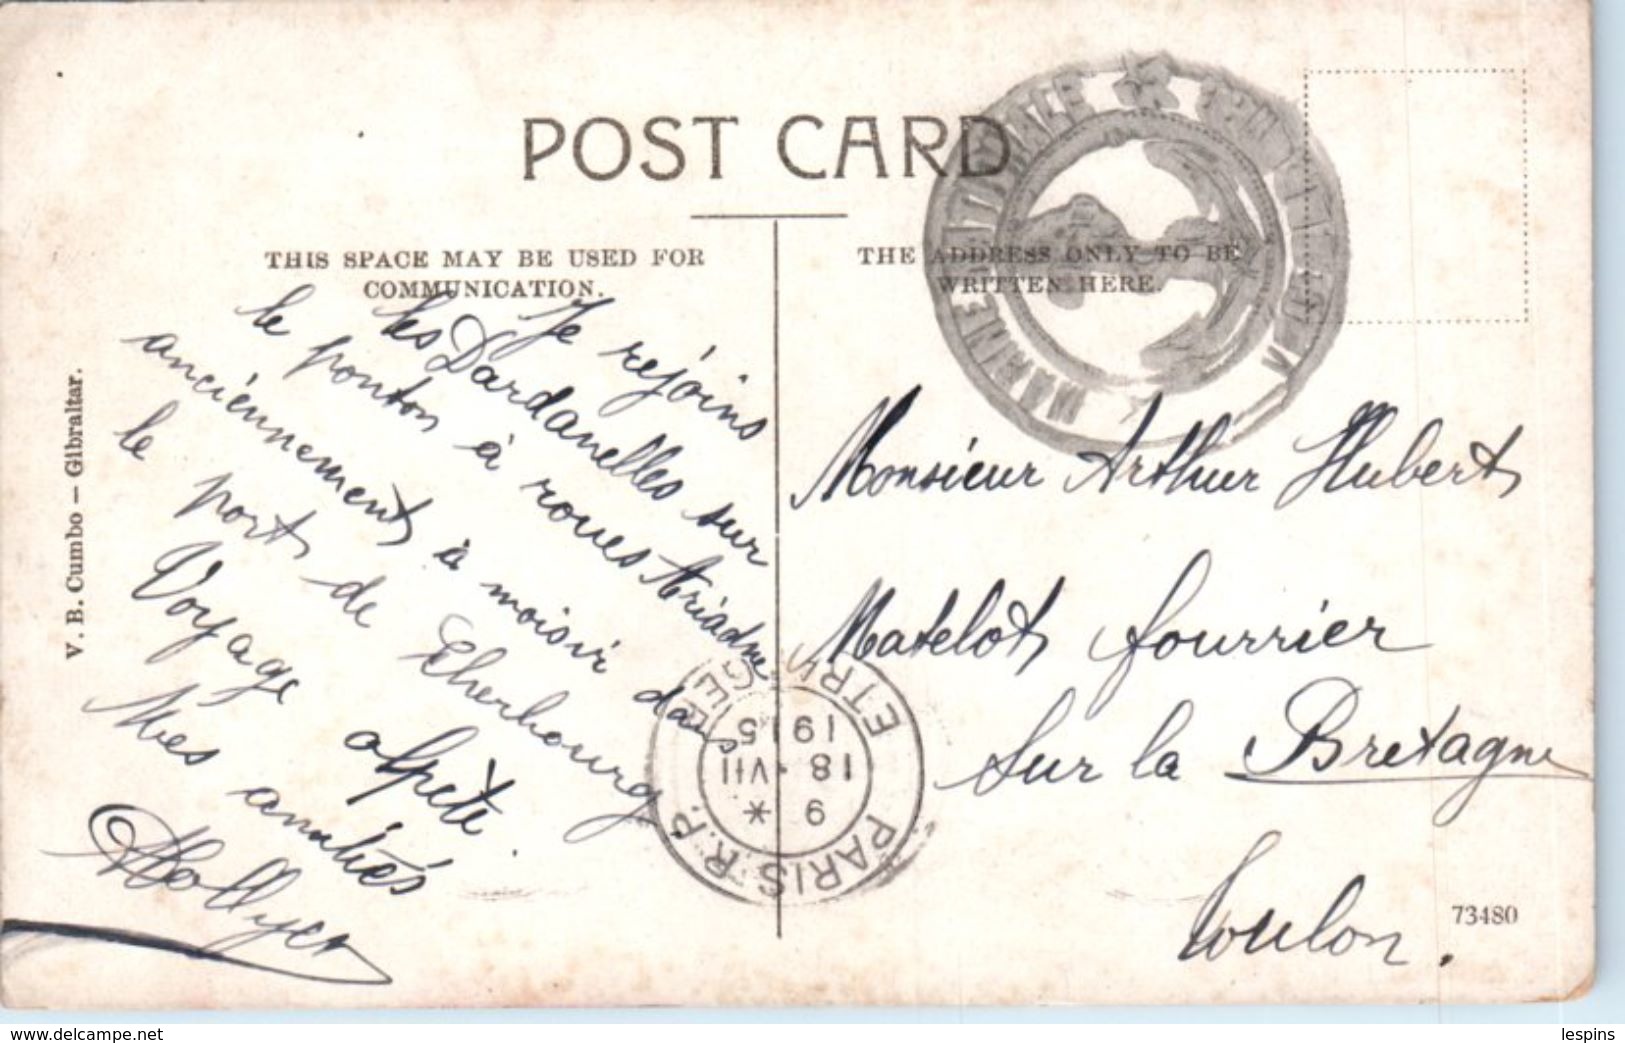 POST CARD
THIS SPACE MAY BE USED FOR
COMMUNICATION.
THE ADDRESS ONLY TO BE
WRITTEN HERE.
V. B. Cumbo – Gibraltar.
Je rejoins
les Dardanelles sur
le ponton à roues Ariadne
anciennement à moisir dans
le port de Cherbourg
Voyage
Mes amitiés
Hollyer
Monsieur Arthur Hubert
Matelot fourrier
sur la Bretagne
Toulon.
73480
MARINE NATIONALE
PARIS R.P.
ETRANGER
9 *
18 - VII
1915
www.delcampe.net
lespins